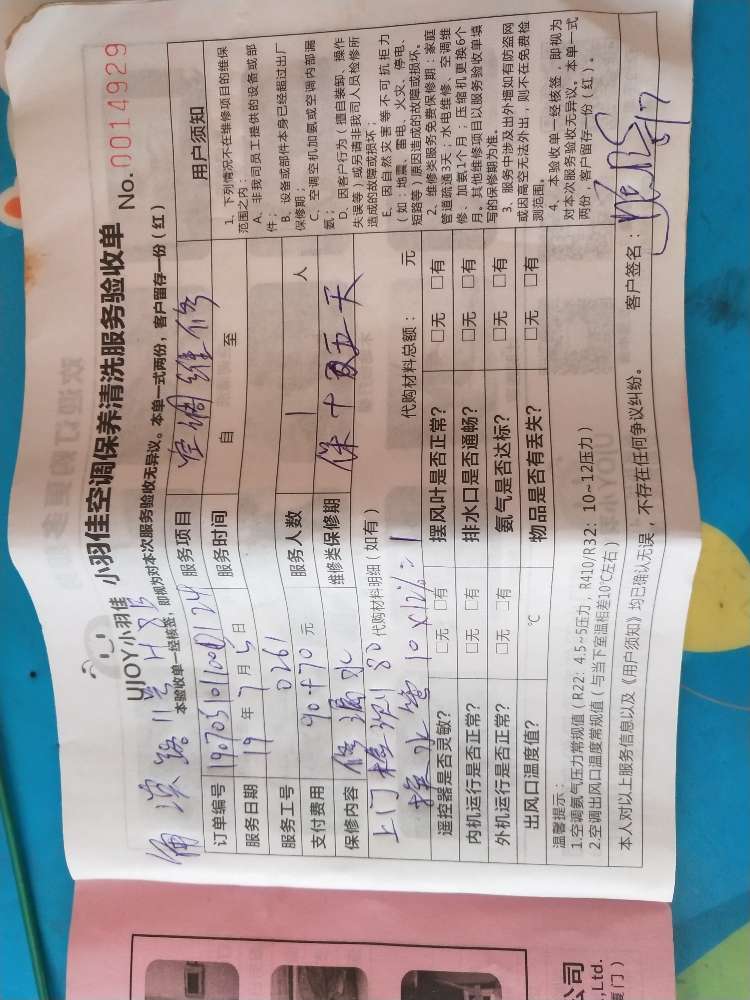 UJOY小羽佳 小羽佳空调保养清洗服务验收单 No. 0014929
本验收单一经核签，即视为对本次服务验收无异议。本单一式两份，客户留存一份（红）
订单编号
服务项目 空调维修
服务日期 19 年 7 月 5 日
服务时间 自 至
服务工号 0261
服务人数 1 人
支付费用 90+70 元
保修内容 修漏水
维修类保修期 保十五天
代购材料明细（如有） 代购材料总额： 元
上门检测 80
排水管 10×12%=1
遥控器是否灵敏？ □无 □有 摆风叶是否正常？ □无 □有
内机运行是否正常？ □无 □有 排水口是否通畅？ □无 □有
外机运行是否正常？ □无 □有 氨气是否达标？ □无 □有
出风口温度值？ ℃ 物品是否有丢失？ □无 □有
温馨提示：
1.空调氨气压力常规值（R22：4.5~5压力，R410/R32：10~12压力）
2.空调出风口温度常规值（与当下室温相差10℃左右）
本人对以上服务信息以及《用户须知》均已确认无误，不存在任何争议纠纷。 客户签名：
用户须知
1、下列情况不在维修项目的维保
范围之内：
A、非我司员工提供的设备或部
件；
B、设备或部件本身已经超过出厂
保修期；
C、空调空机加氨或空调内部漏
氨；
D、因客户行为（擅自装卸、操作
失误等）或另请非我司人员检修所
造成的故障或损坏；
E、因自然灾害等不可抗拒力
（如：地震、雷电、火灾、停电、
短路等）原因造成的故障或损坏。
2、维修类服务免费保修期：家庭
管道疏通3天；水电维修、空调维
修、加氨1个月；压缩机更换6个
月。其他维修项目以服务验收单填
写的保修期为准。
3、服务中涉及出外墙如有防盗网
或因高空无法外出，则不在免费检
测范围。
4、本验收单一经核签，即视为
对本次服务验收无异议。本单一式
两份，客户留存一份（红）。
公司
,Ltd.
厦门）